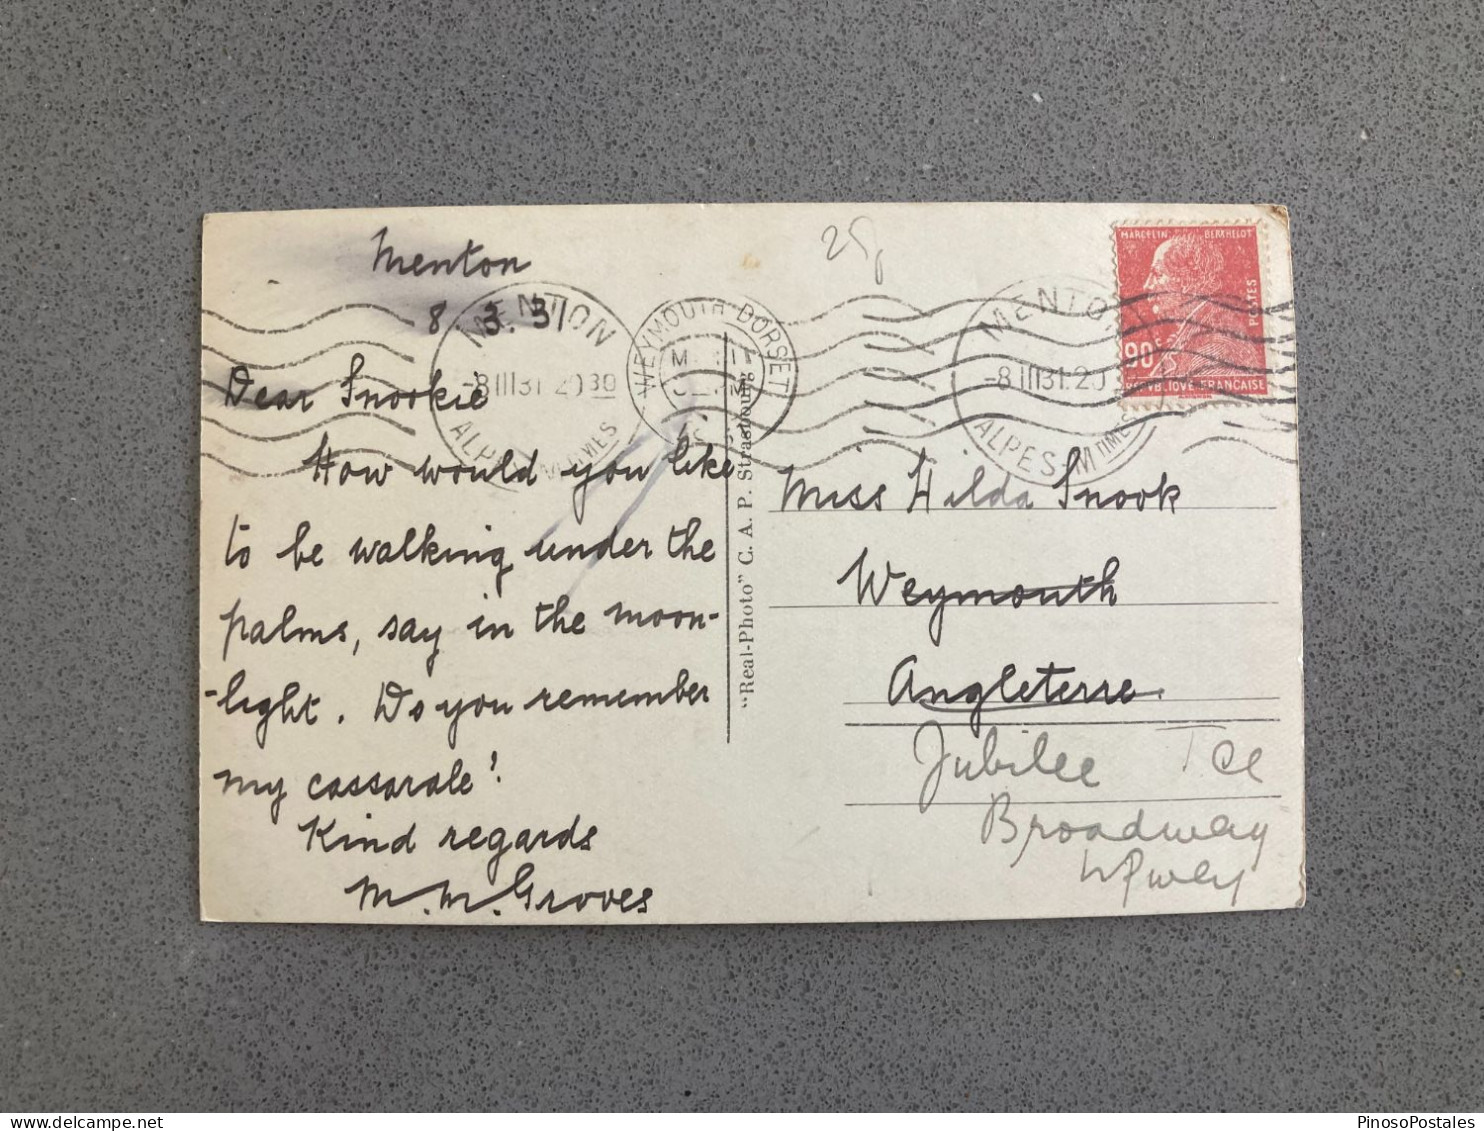 Menton
8 3. 31
Dear Snookie
How would you like
to be walking under the
palms, say in the moon-
-light. Do you remember
my cassarole!
Kind regards
M. M. Groves
MENTON
-8 III 31. 20 30
ALPES-MTIMES
WEYMOUTH·DORSET
"Real-Photo" C. A. P. Strasbourg
25p
MENTON
-8 III 31. 20
ALPES-MTIMES
MARCELIN BERTHELOT
POSTES
90c
REPUBLIQUE FRANCAISE
Miss Hilda Snook
Weymouth
Angleterre
Jubilee Tce
Broadway
Upwey
PinosoPostales